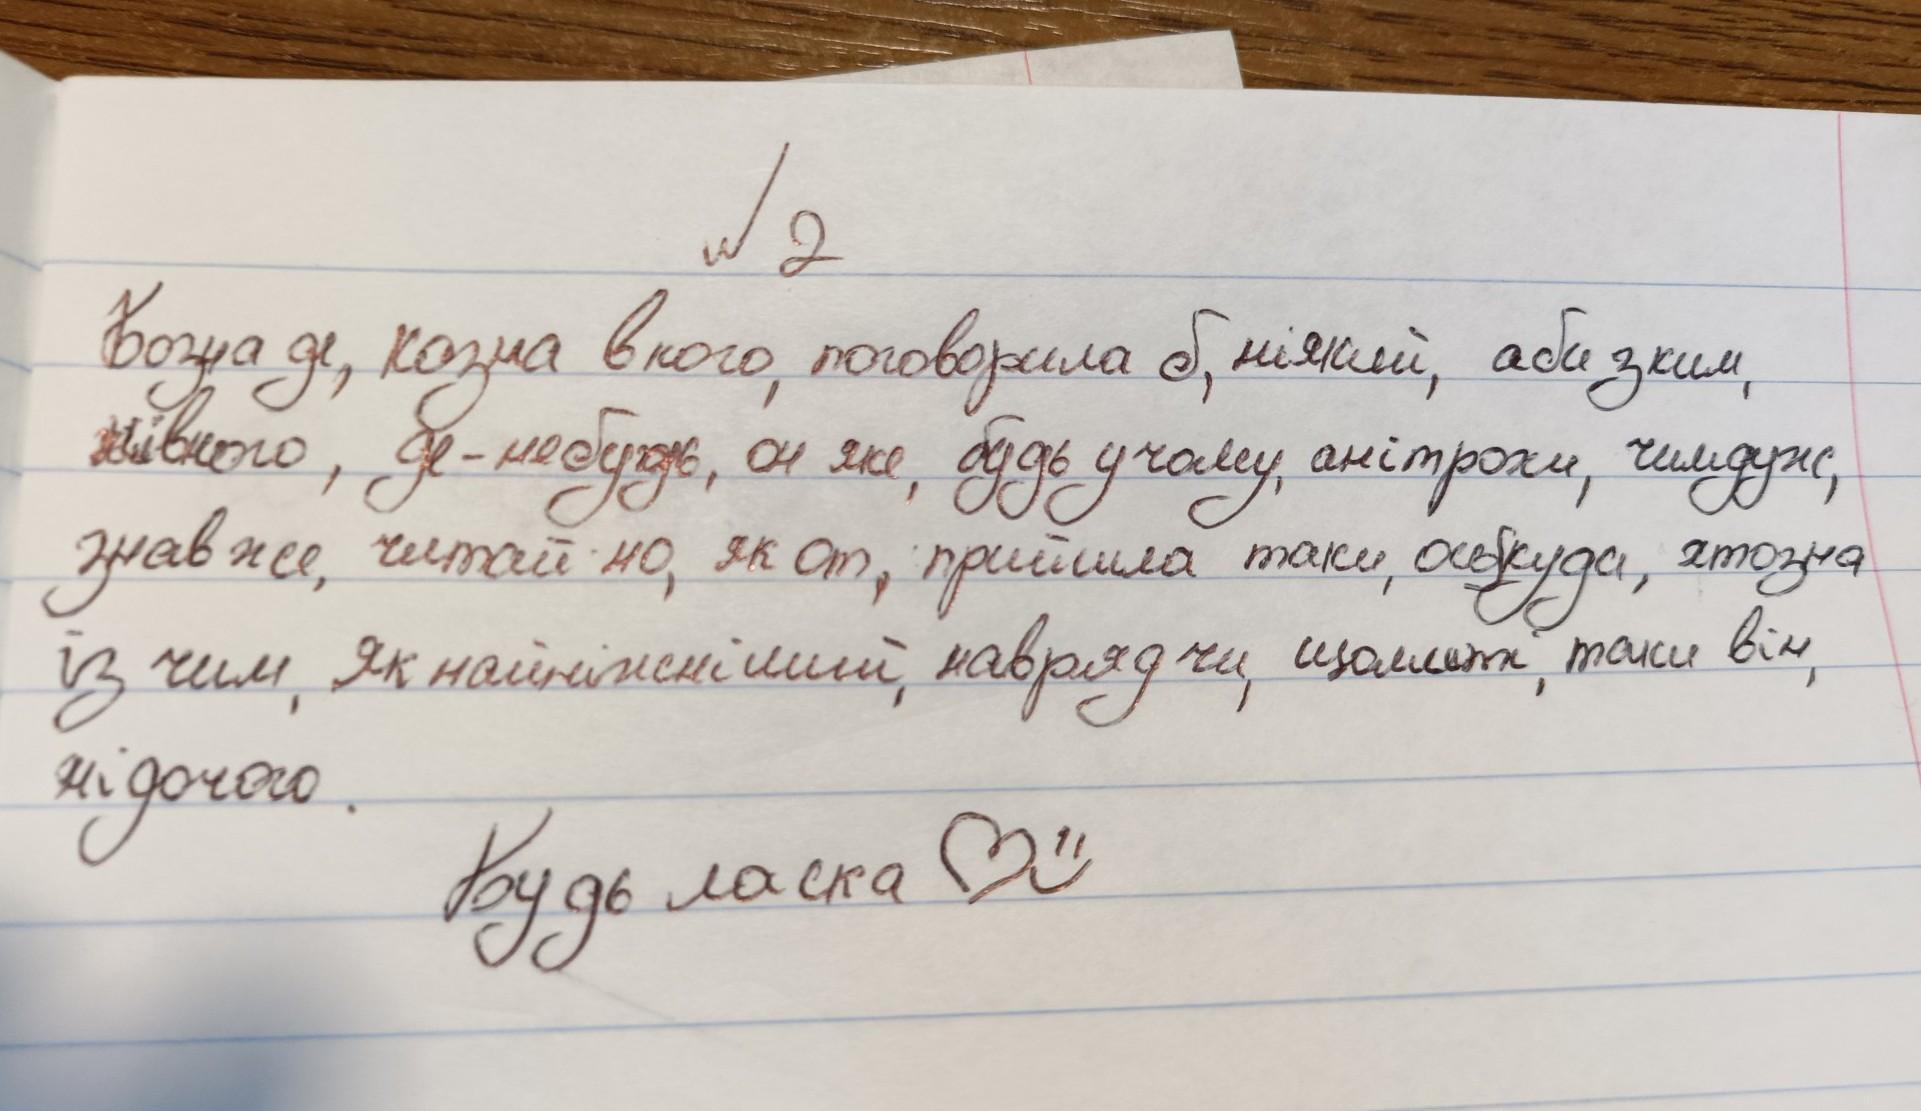 №2
Бозна де, казна в кого, поговорила б, ніякий, аби з ким,
нівкого, де-небудь, он яке, будь у чому, анітрохи, чимдуж,
знав же, читай но, як от, прийшла таки, осьвкуди, хтозна
із чим, як найніжніший, навряд чи, щомиті, таки він,
нідочого.
Будь ласка ♡